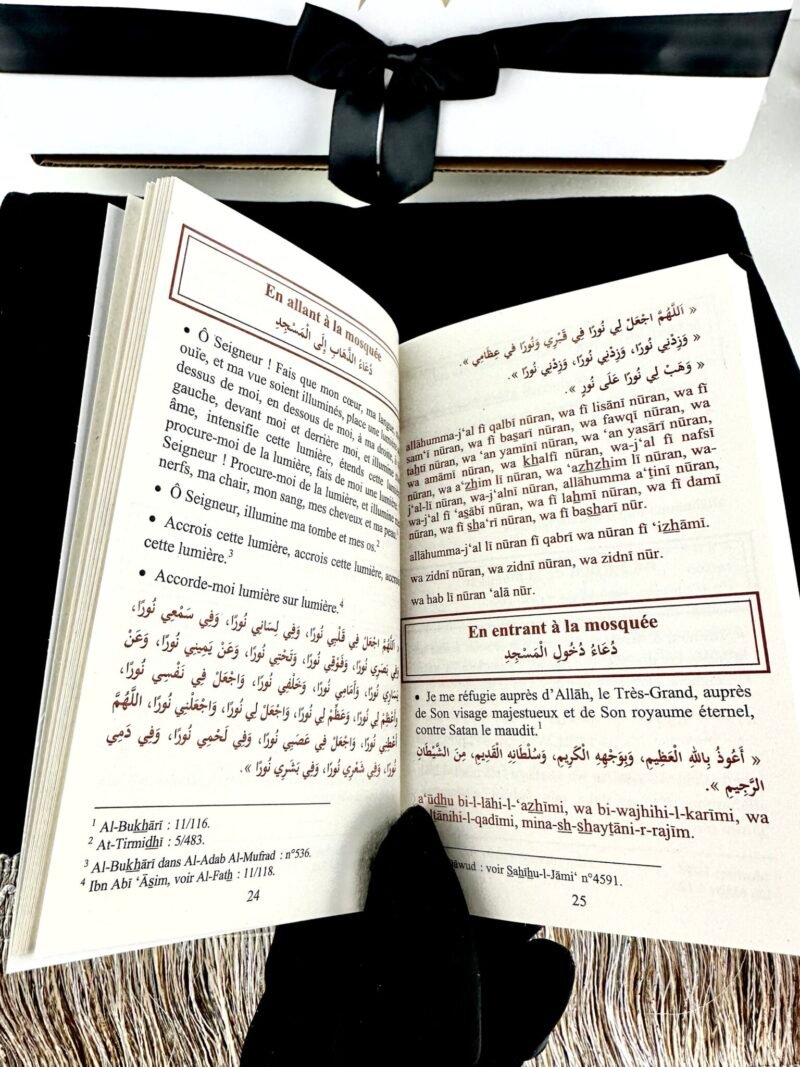 En allant à la mosquée
دُعَاءُ الذَّهَابِ إِلَى الْمَسْجِدِ
• Ô Seigneur ! Fais que mon cœur, ma langue,
ouïe, et ma vue soient illuminés, place une lumière
dessus de moi, en dessous de moi, à ma droite, à
gauche, devant moi et derrière moi, et illumine
âme, intensifie cette lumière, étends cette lumière
procure-moi de la lumière, fais de moi une lumière
Seigneur ! Procure-moi de la lumière, et illumine mes
nerfs, ma chair, mon sang, mes cheveux et ma peau.
• Ô Seigneur, illumine ma tombe et mes os.²
• Accrois cette lumière, accrois cette lumière, accrois
cette lumière.³
• Accorde-moi lumière sur lumière.⁴
« اللَّهُمَّ اجْعَلْ فِي قَلْبِي نُورًا، وَفِي لِسَانِي نُورًا، وَفِي سَمْعِي نُورًا،
وَفِي بَصَرِي نُورًا، وَفَوْقِي نُورًا، وَتَحْتِي نُورًا، وَعَنْ يَمِينِي نُورًا، وَعَنْ
يَسَارِي نُورًا، وَأَمَامِي نُورًا، وَخَلْفِي نُورًا، وَاجْعَلْ فِي نَفْسِي نُورًا،
وَأَعْظِمْ لِي نُورًا، وَعَظِّمْ لِي نُورًا، وَاجْعَلْ لِي نُورًا، وَاجْعَلْنِي نُورًا، اللَّهُمَّ
أَعْطِنِي نُورًا، وَاجْعَلْ فِي عَصَبِي نُورًا، وَفِي لَحْمِي نُورًا، وَفِي دَمِي
نُورًا، وَفِي شَعْرِي نُورًا، وَفِي بَشَرِي نُورًا ».
¹ Al-Bukhārī : 11/116.
² At-Tirmidhī : 5/483.
³ Al-Bukhārī dans Al-Adab Al-Mufrad : n°536.
⁴ Ibn Abī ‘Āṣim, voir Al-Fatḥ : 11/118.
24
« اَللَّهُمَّ اجْعَلْ لِي نُورًا فِي قَبْرِي وَنُورًا في عِظَامِي ».
« وَزِدْنِي نُورًا، وَزِدْنِي نُورًا، وَزِدْنِي نُورًا ».
« وَهَبْ لِي نُورًا عَلَى نُورٍ ».
allāhumma-j‘al fī qalbī nūran, wa fī lisānī nūran, wa fī
sam‘ī nūran, wa fī baṣarī nūran, wa fawqī nūran, wa
taḥtī nūran, wa ‘an yamīnī nūran, wa ‘an yasārī nūran,
wa amāmī nūran, wa khalfī nūran, wa-j‘al fī nafsī
nūran, wa a‘ẓhim lī nūran, wa ‘azhzhim lī nūran, wa-
j‘al-lī nūran, wa-j‘alnī nūran, allāhumma a‘ṭinī nūran,
wa-j‘al fī ‘aṣabī nūran, wa fī laḥmī nūran, wa fī damī
nūran, wa fī sha‘rī nūran, wa fī basharī nūr.
allāhumma-j‘al lī nūran fī qabrī wa nūran fī ‘izhāmī.
wa zidnī nūran, wa zidnī nūran, wa zidnī nūr.
wa hab lī nūran ‘alā nūr.
En entrant à la mosquée
دُعَاءُ دُخُولِ الْمَسْجِدِ
• Je me réfugie auprès d’Allāh, le Très-Grand, auprès
de Son visage majestueux et de Son royaume éternel,
contre Satan le maudit.¹
« أَعُوذُ بِاللهِ الْعَظِيمِ، وَبِوَجْهِهِ الْكَرِيمِ، وَسُلْطَانِهِ الْقَدِيمِ، مِنَ الشَّيْطَانِ
الرَّجِيمِ ».
a‘ūdhu bi-l-lāhi-l-‘azhīmi, wa bi-wajhihi-l-karīmi, wa
ṭānihi-l-qadīmi, mina-sh-shayṭāni-r-rajīm.
āwud : voir Ṣaḥīḥu-l-Jāmi‘ n°4591.
25